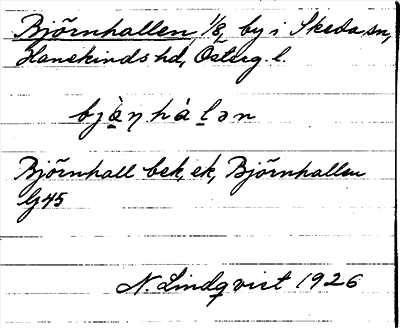 Björnhallen, 1/8, by i Skeda sn,
Hanekinds hd, Österg. l.
bjä̀ṇhálən
Björnhall bek, ek, Björnhallen
G45
N. Lindqvist 1926